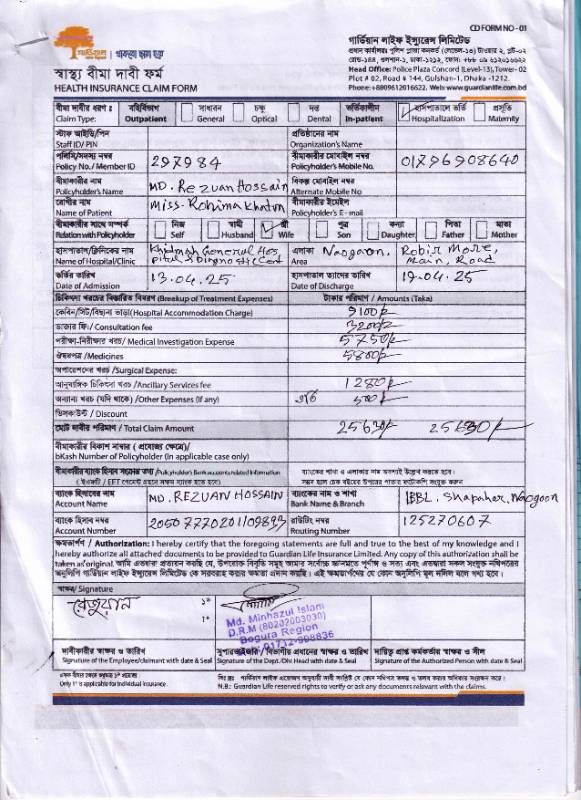 CD FORM NO - 01
গার্ডিয়ান লাইফ ইন্স্যুরেন্স লিমিটেড
Head Office: Police Plaza Concord (Level-13), Tower- 02
Plot # 02, Road # 144, Gulshan-1, Dhaka -1212.
Phone:+8809612016622. Web: www.guardianlife.com.bd
স্বাস্থ্য বীমা দাবী ফর্ম
HEALTH INSURANCE CLAIM FORM
বীমা দাবীর ধরণ : বহির্বিভাগ সাধারন চক্ষু দন্ত ভর্তিকালীন হাসপাতালে ভর্তি প্রসূতি
Claim Type: Outpatient General Optical Dental In-patient Hospitalization Maternity
স্টাফ আইডি/পিন প্রতিষ্ঠানের নাম
Staff ID/ PIN Organization's Name
পলিসি/সদস্য নম্বর 297984 বীমাকারীর মোবাইল নম্বর 01796908640
Policy No./ Member ID Policyholder's Mobile No.
বীমাকারীর নাম MD. Rezuan Hossain বিকল্প মোবাইল নম্বর
Policyholder's Name Alternate Mobile No
রোগীর নাম Miss. Rohima Khatun বীমাকারীর ইমেইল
Name of Patient Policyholder's E - mail
বীমাকারীর সাথে সম্পর্ক নিজ স্বামী স্ত্রী পুত্র কন্যা পিতা মাতা
Relation with Policyholder Self Husband Wife Son Daughter Father Mother
হাসপাতাল/ক্লিনিকের নাম Khidmah General Hos এলাকা Naogaon, Robir More,
Name of Hospital/Clinic pital & Diagnostic Cent Area Main, Road
ভর্তির তারিখ 13.04.25 হাসপাতাল ত্যাগের তারিখ 19.04.25
Date of Admission Date of Discharge
চিকিৎসা খরচের বিস্তারিত বিবরণ (Breakup of Treatment Expenses) টাকার পরিমাণ / Amounts (Taka)
কেবিন/সিট/বিছানা ভাড়া(Hospital Accommodation Charge) 9100/-
ডাক্তার ফি:/ Consultation fee 3200/-
পরীক্ষা-নিরীক্ষার খরচ/ Medical Investigation Expense 5750/-
ঔষধপত্র /Medicines 5800/-
অপারেশনের খরচ /Surgical Expense:
আনুষাঙ্গিক চিকিৎসা খরচ /Ancillary Services fee 1280/-
অন্যান্য খরচ (যদি থাকে) /Other Expenses (If any) ভর্তি 500/-
ডিসকাউন্ট / Discount
মোট দাবীর পরিমাণ / Total Claim Amount 25630/- 25630/-
বীমাকারীর বিকাশ নাম্বার ( প্রযোজ্য ক্ষেত্রে)/
bKash Number of Policyholder (In applicable case only)
বীমাকারীর ব্যাংক হিসাব সংক্রান্ত তথ্য /Policyholder's Bank accounts related Information
ব্যাংক হিসাবের নাম MD. REZUAN HOSSAIN ব্যাংকের নাম ও শাখা IBBL. Shapaher, Naogaon
Account Name Bank Name & Branch
ব্যাংক হিসাব নম্বর 20507770201109893 রাউটিং নম্বর 125270607
Account Number Routing Number
ক্ষমতার্পণ / Authorization: I hereby certify that the foregoing statements are full and true to the best of my knowledge and I
hereby authorize all attached documents to be provided to Guardian Life Insurance Limited. Any copy of this authorization shall be
taken as original.
স্বাক্ষর/ Signature
রেজুয়ান ১ম
Md. Minhazul Islam
D.R.M (80202003030)
1* Bogura Region
দাবীকারীর স্বাক্ষর ও তারিখ সুপারভাইজার / বিভাগীয় প্রধানের স্বাক্ষর ও তারিখ দায়িত্ব প্রাপ্ত কর্মকর্তার স্বাক্ষর ও সীল
Signature of the Employee/claimant with date & Seal Signature of the Dept./Div. Head with date & Seal Signature of the Authorized Person with date & Seal
Only 1* is applicable for individual insurance.
N.B.: Guardian Life reserved rights to verify or ask any documents relevant with the claims.